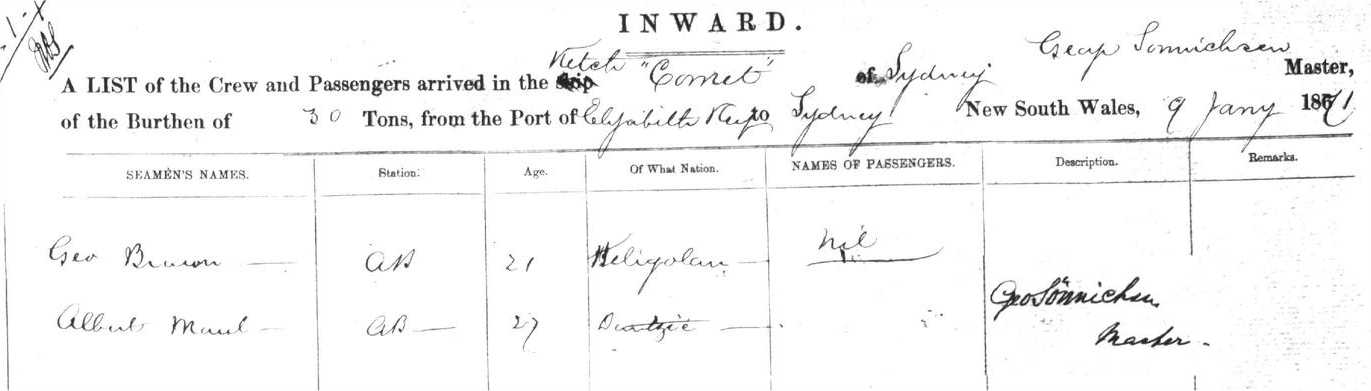 INWARD.
Ketch "Comet" of Sydney Geo Sonnichsen
A LIST of the Crew and Passengers arrived in the ship Master,
of the Burthen of 30 Tons, from the Port of Elizabeth to Sydney New South Wales, 9 Jany 1871
SEAMEN'S NAMES. Station. Age. Of What Nation. NAMES OF PASSENGERS. Description. Remarks.
Geo AB 21 Heligolan nil
Geo Sönnichsen
Albert AB 27
Master